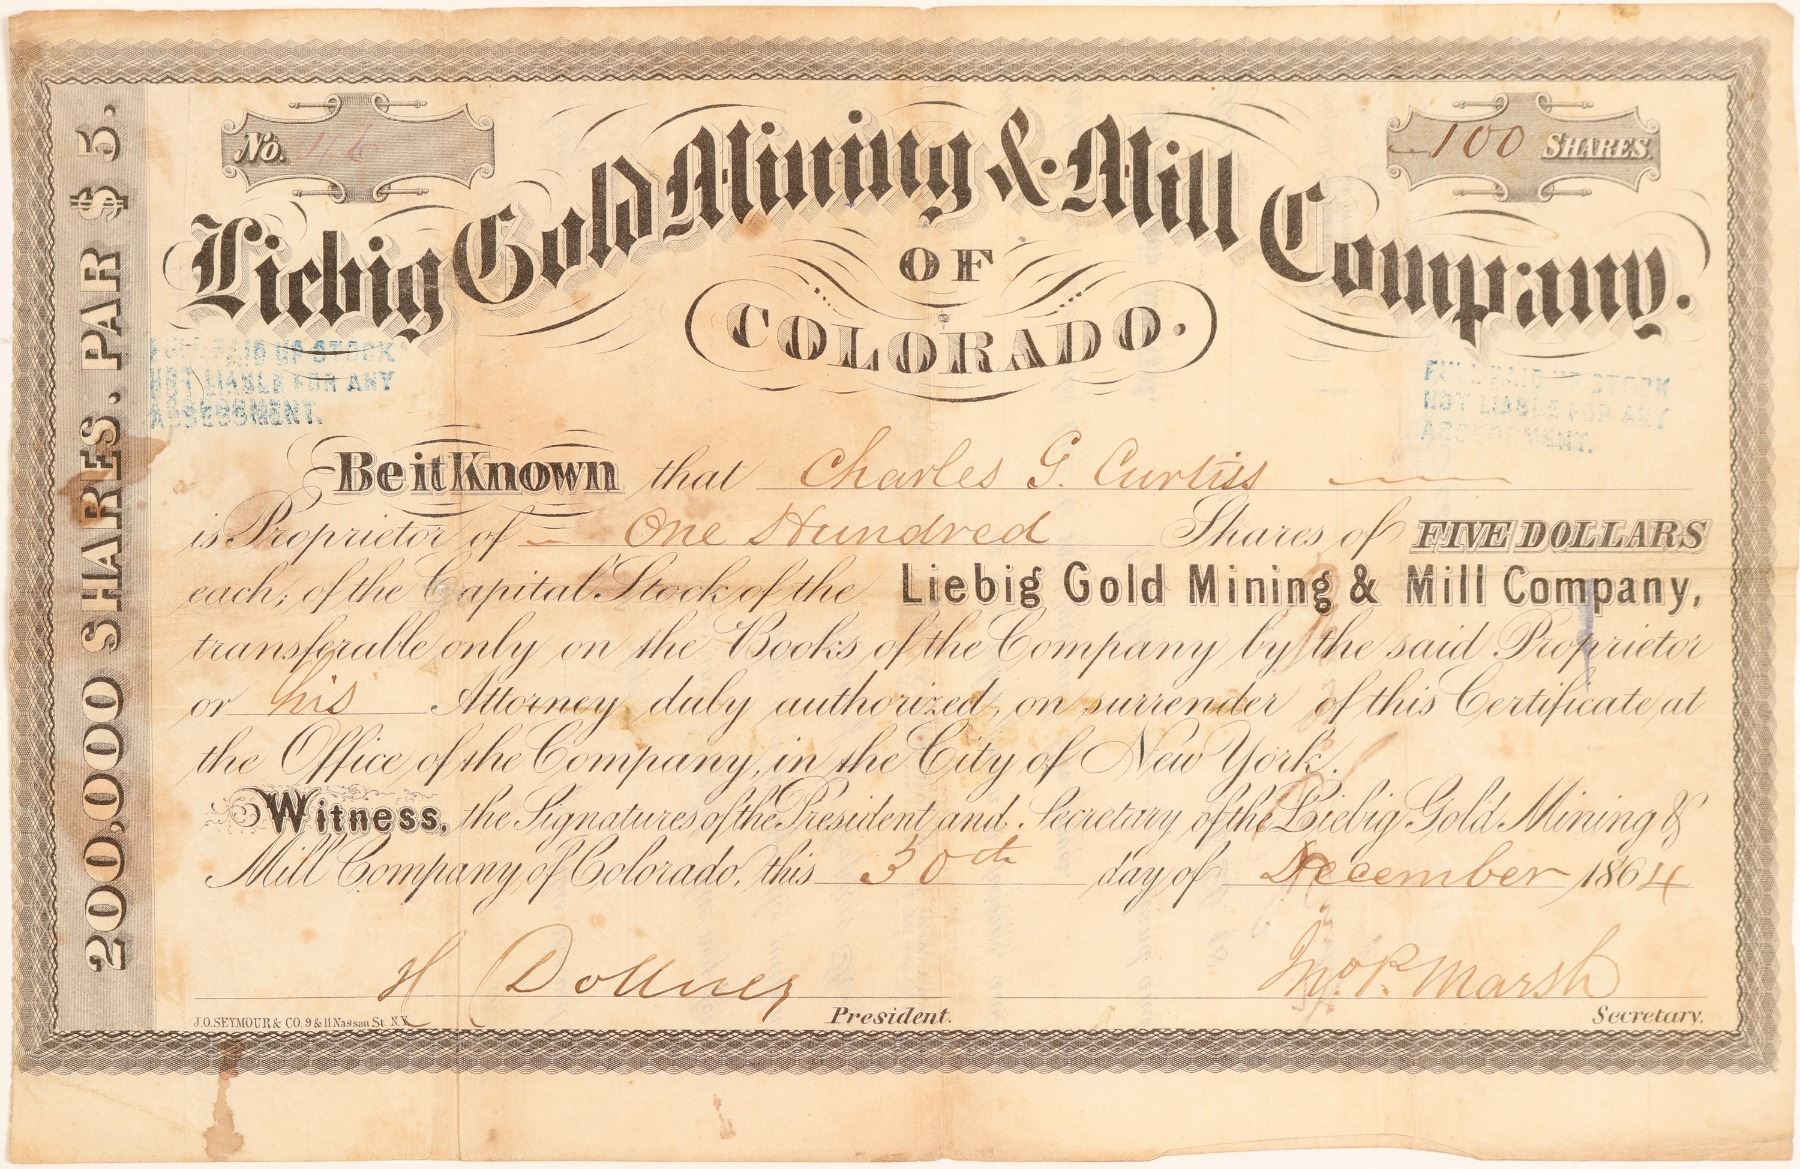 No.
100 SHARES.
Liebig Gold Mining & Mill Company.
OF
COLORADO.
200,000 SHARES. PAR $5.
FULL PAID UP STOCK
NOT LIABLE FOR ANY
ASSESSMENT.
FULL PAID UP STOCK
NOT LIABLE FOR ANY
ASSESSMENT.
Be it Known that Charles G. Curtiss
is Proprietor of One Hundred Shares of FIVE DOLLARS
each; of the Capital Stock of the Liebig Gold Mining & Mill Company,
transferable only on the Books of the Company by the said Proprietor
or his Attorney duly authorized, on surrender of this Certificate at
the Office of the Company, in the City of New York.
Witness, the Signatures of the President and Secretary of the Liebig Gold Mining &
Mill Company of Colorado, this 30th day of December 1864
H Dollner
President.
Jno. P. Marsh
Secretary.
J.O. SEYMOUR & CO. 9 & 11 Nassau St. N.Y.